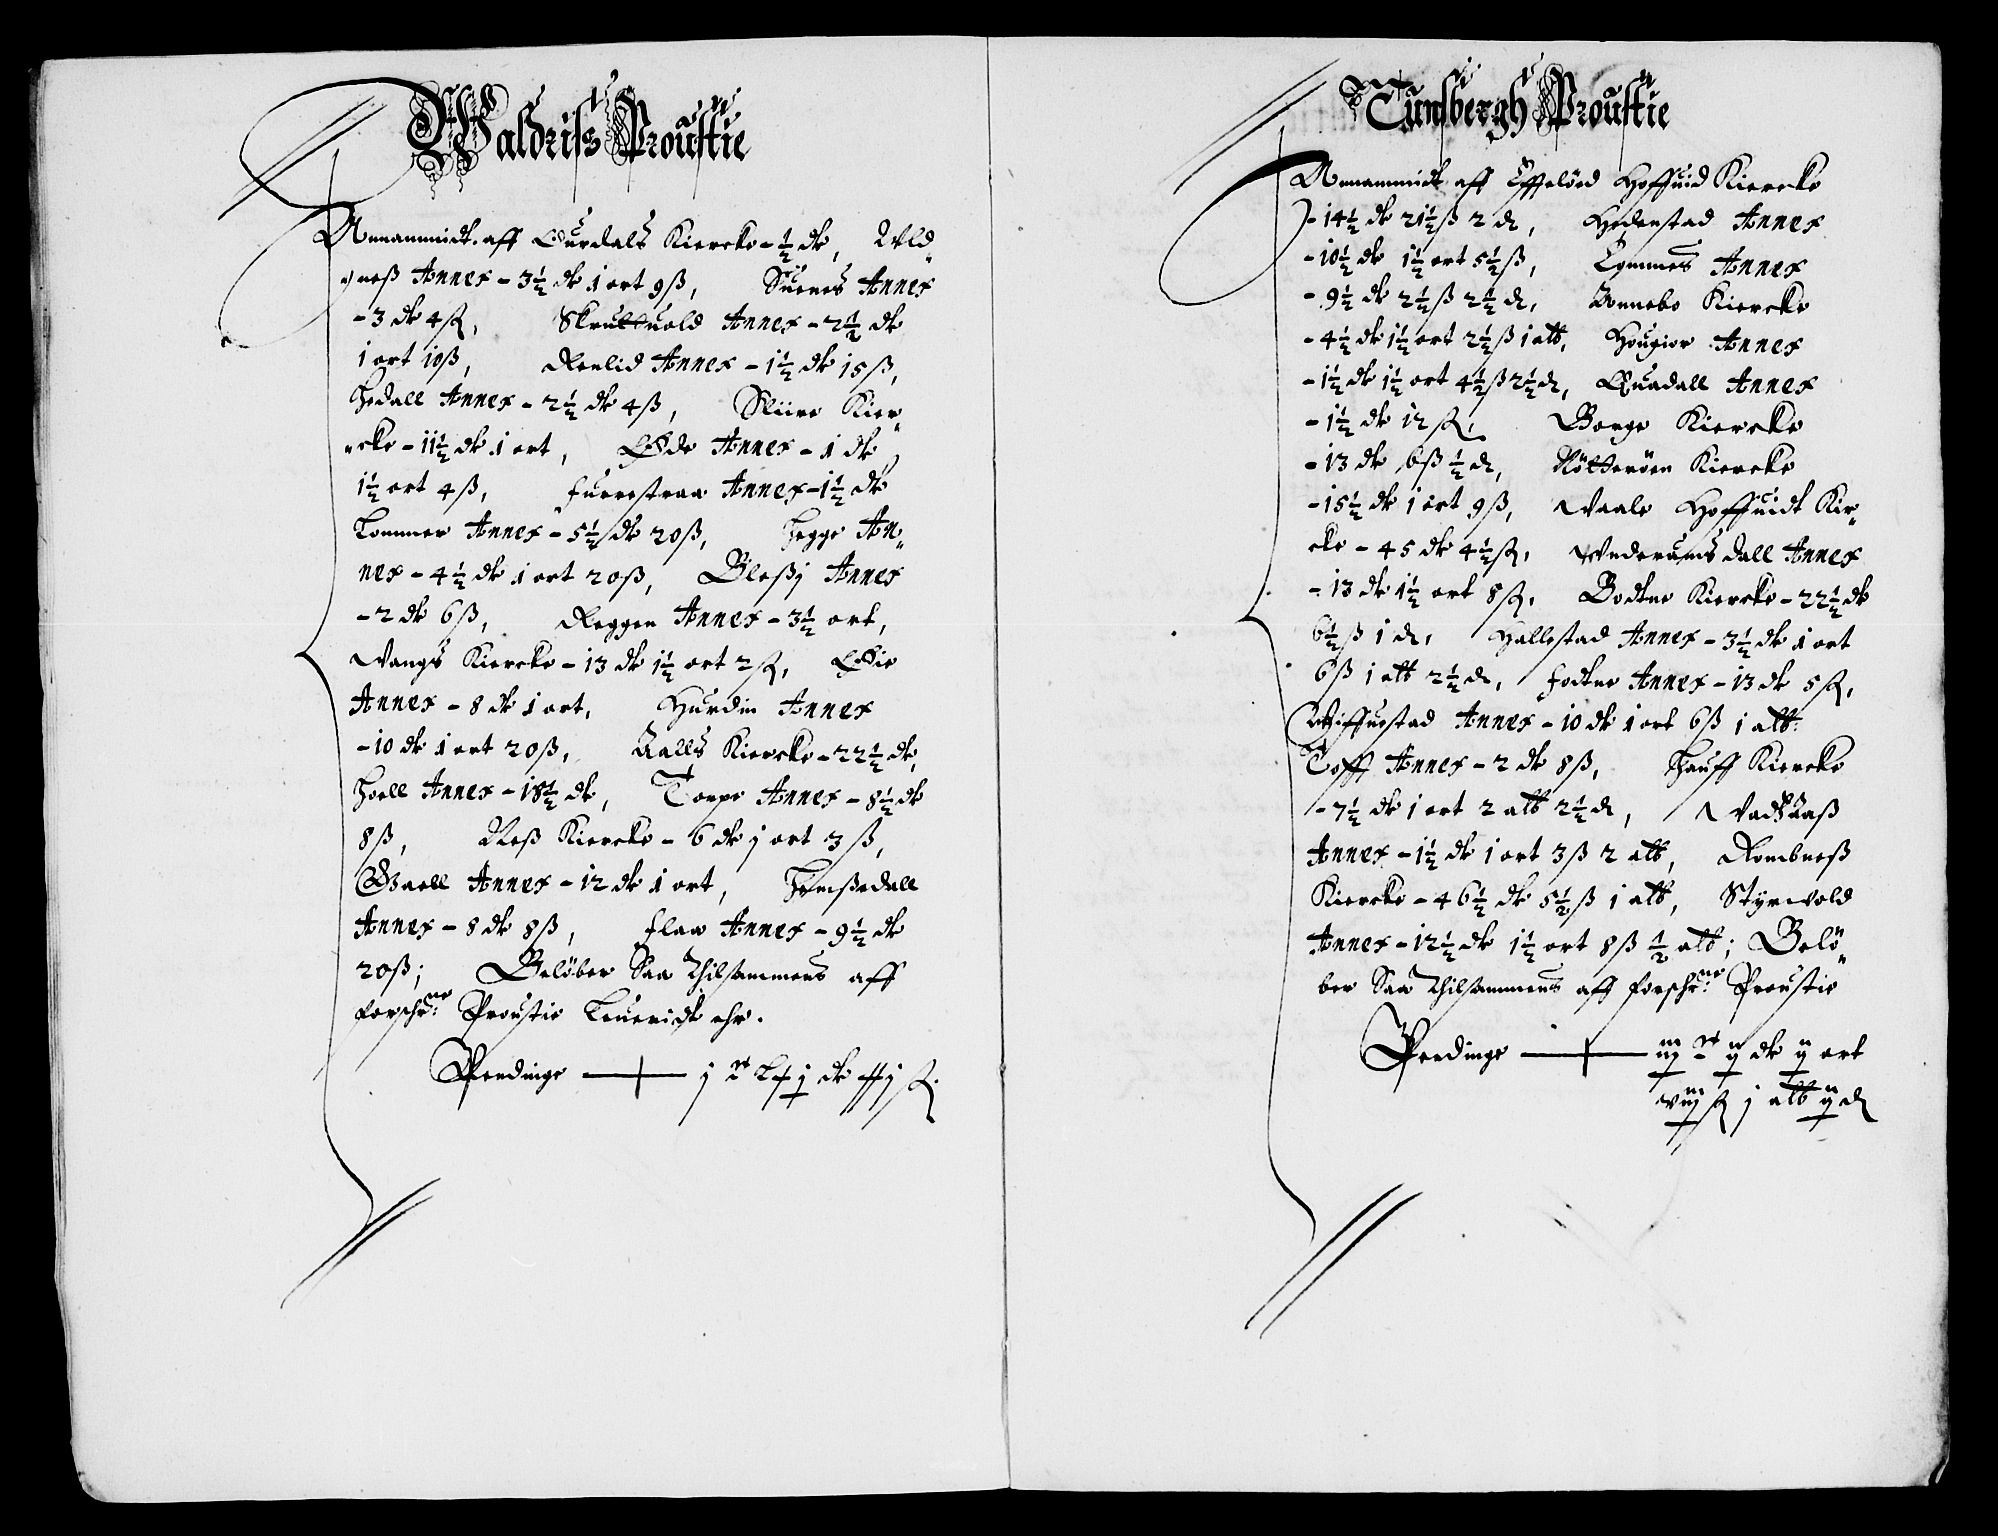 Waldriss Proustie
Annammidt aff Ourdals Kiercke - ½ dr, Vld¬
neß Annex - 3½ dr 1 ort 9 ß, Suenes Annex
- 3 dr 4 sk, Skrutuold Annex - 2½ dr
1 ort 10 ß, Renlid Annex - 1½ dr 15 ß,
Hedall Annex - 2½ dr 4 ß, Sliire Kier¬
cke - 11½ dr 1 ort, Øde Annex - 1 dr
1½ ort 4 ß, furrestraa Annex - 1½ dr
Lommer Annex - 5½ dr 20 ß, Hegge An¬
nex - 4½ dr 1 ort 20 ß, Bleßj Annex
- 2 dr 6 ß, Røggen Annex - 3½ ort,
Wangs Kiercke - 13 dr 1½ ort 2 sk, Øie
Annex - 8 dr 1 ort, Hurdin Annex
- 10 dr 1 ort 20 ß, Aalls Kiercke - 22½ dr,
Hoell Annex - 18½ dr, Torpe Annex - 8½ dr
8 ß, Neß Kiercke - 6 dr j ort 3 ß,
Giaell Annex - 12 dr 1 ort, Hemßedall
Annex - 8 dr 8 ß, flaa Annex - 9½ dr
20 ß; Beløber Saa thilsammens aff
forschr:ne Proustie Leueridt ehr.
Pendinge
Tunsbergh Proustie
Annammidt aff Effeløed Hoffuid Kiercke
- 14½ dr 21½ ß 2 d, Hedenstad Annex
- 10½ dr 1½ ort 5½ ß, Lommes Annex
- 9½ dr 2½ ß 2½ d, Annebo Kiercke
- 4½ dr 1½ ort 2½ ß 1 alb, Hougior Annex
- 1½ dr 1½ ort 4½ ß 2½ d, Quadall Annex
- 1½ dr 12 sk, Borge Kiercke
- 13 dr 6 ß ½ d, Nøtterøen Kiercke
- 15½ dr 1 ort 9 ß, Waale Hoffuidt Kir¬
cke - 45 dr 4½ sk, Vnderumsdall Annex
- 13 dr 1½ ort 8 sk, Bodtne Kiercke - 22½ dr
6½ ß 1 d, Hallestad Annex - 3½ dr 1 ort
6 ß 1 alb 2½ d, fodtne Annex - 13 dr 5 sk,
Wiffuestad Annex - 10 dr 1 ort 6 ß 1 alb
Toff Annex - 2 dr 8 ß, Hauff Kiercke
- 7½ dr 1 ort 2 alb 2½ d, Vadkaaß
Annex - 1½ dr 1 ort 3 ß 2 alb, Rombneß
Kiercke - 46½ dr 5½ ß 1 alb, Styrvold
Annex - 12½ dr 1½ ort 8 ß ½ alb; Belø¬
ber Saa thilsammens aff forschr:ne Proustie
Pendinge iij c ij dr ij ort
viij sk j alb ij d